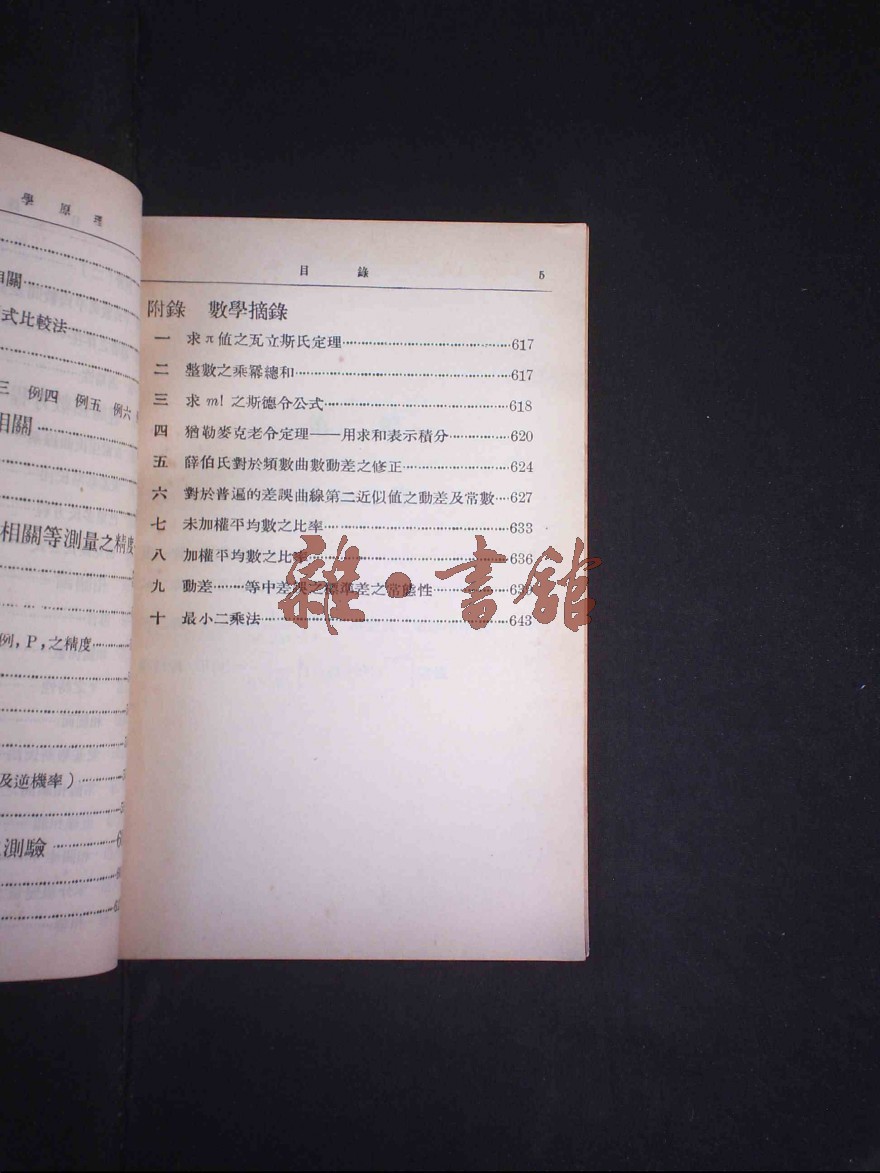 學原理
相關
式比較法
三 例四 例五 例六
相關
相關等測量之精度
例，P，之精度
及逆機率）
測驗
目錄 5
附錄 數學摘錄
一 求π值之瓦立斯氏定理……617
二 整數之乘冪總和……617
三 求m!之斯德令公式……618
四 猶勒麥克老令定理——用求和表示積分……620
五 薛伯氏對於頻數曲數動差之修正……624
六 對於普遍的差誤曲線第二近似值之動差及常數……627
七 未加權平均數之比率……633
八 加權平均數之比率……636
九 動差……等中差誤之標準差之常態性……
十 最小二乘法……643
雜·書館